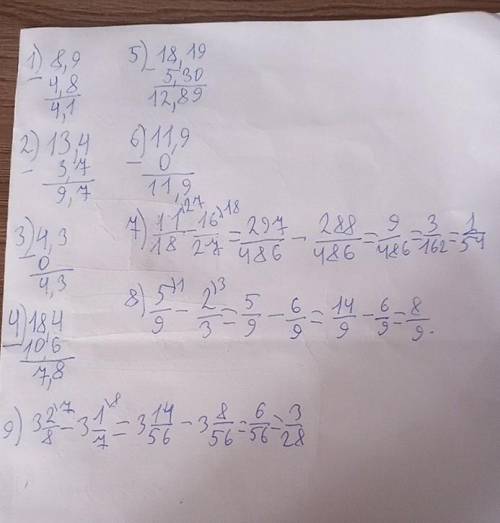 1) 8,9
- 4,8
4,1
2) 13,4
- 3,7
9,7
3) 4,3
- 0
4,3
4) 18,4
- 10,6
7,8
5) 18,19
- 5,30
12,89
6) 11,9
- 0
11,9
7) 11/18 \27 - 16/27 \18 = 297/486 - 288/486 = 9/486 = 3/162 = 1/54
8) 5/9 \1 - 2/3 \3 = 5/9 - 6/9 = 14/9 - 6/9 = 8/9.
9) 3 2/8 \7 - 3 1/7 \8 = 3 14/56 - 3 8/56 = 6/56 = 3/28